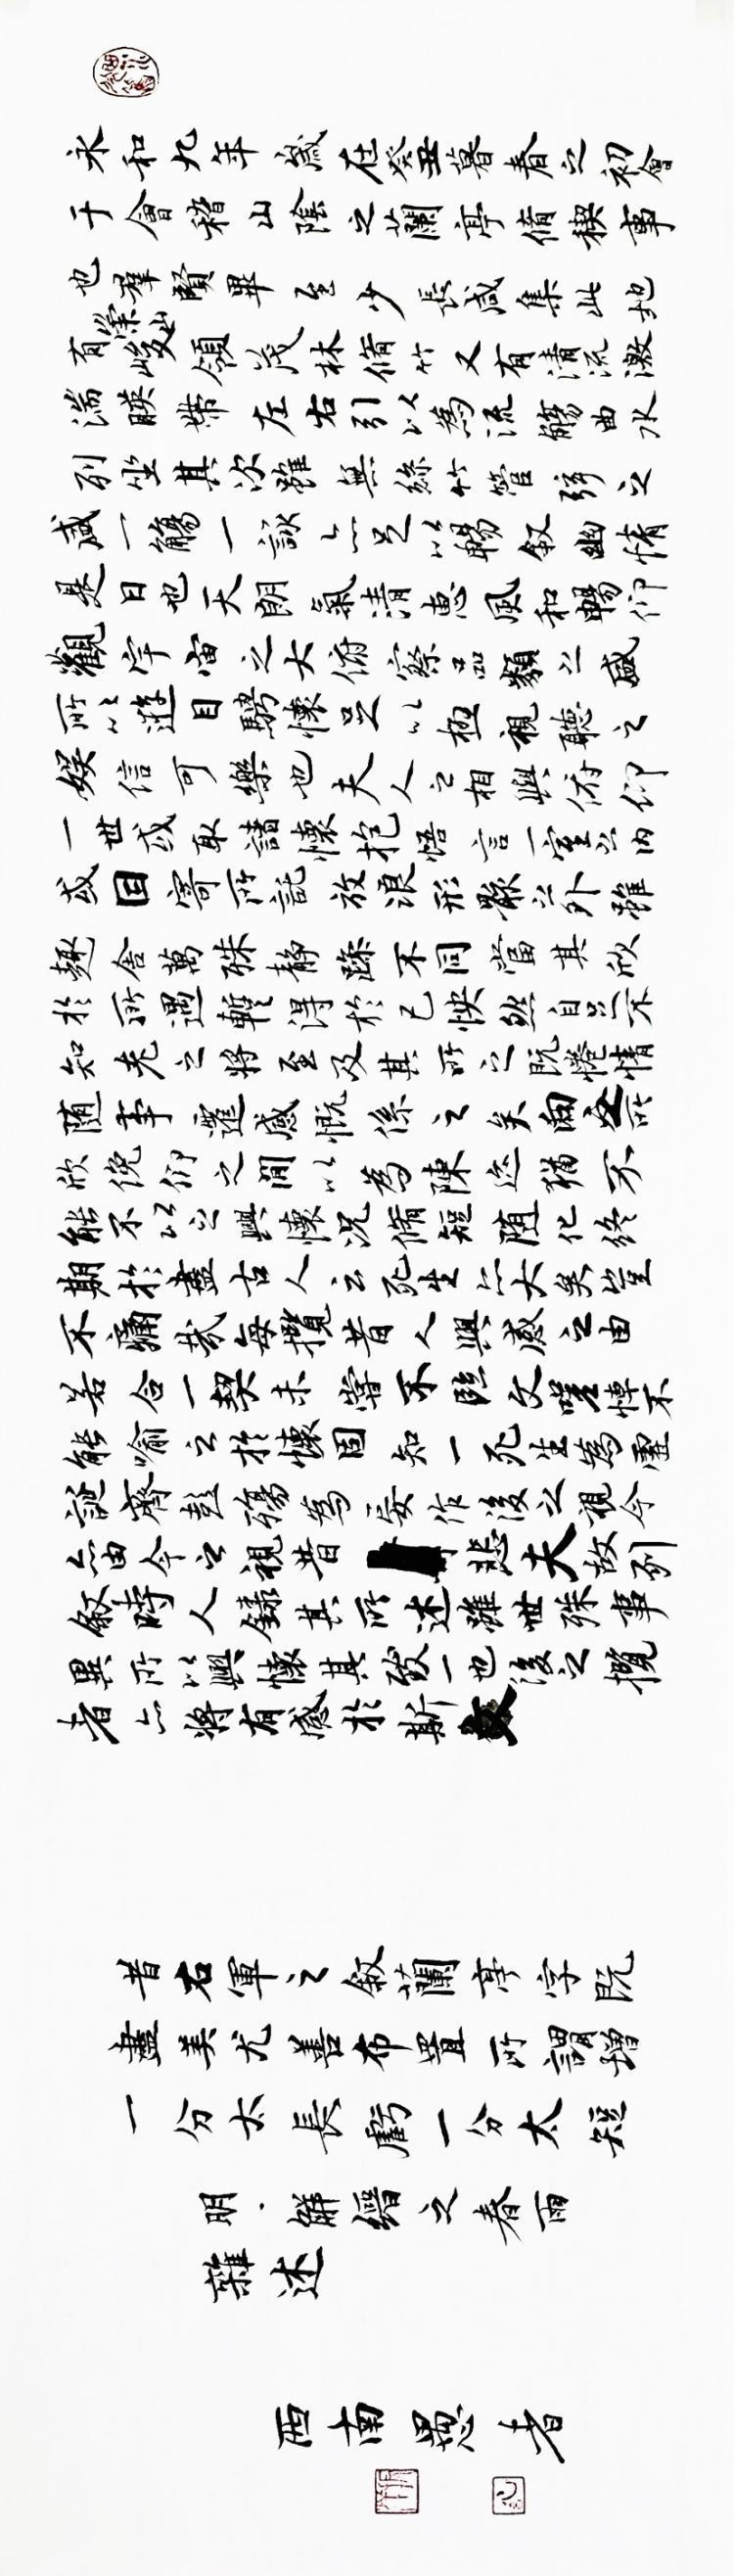 永和九年歲在癸丑暮春之初會
于會稽山陰之蘭亭脩稧事
也羣賢畢至少長咸集此地
有崇山峻領茂林脩竹又有清流激
湍暎帶左右引以為流觴曲水
列坐其次雖無絲竹管弦之
盛一觴一詠亦足以暢敘幽情
是日也天朗氣清惠風和暢仰
觀宇宙之大俯察品類之盛
所以遊目騁懷足以極視聽之
娛信可樂也夫人之相與俯仰
一世或取諸懷抱悟言一室之內
或因寄所託放浪形骸之外雖
趣舍萬殊靜躁不同當其欣
於所遇蹔得於己怏然自足不
知老之將至及其所之既惓情
随事遷感慨係之矣向之所
欣俛仰之閒以為陳迹猶不
能不以之興懷況脩短随化終
期於盡古人云死生亦大矣豈
不痛哉每攬昔人興感之由
若合一契未嘗不臨文嗟悼不
能喻之於懷固知一死生為虛
誕齊彭殤為妄作後之視今
亦由今之視昔悲夫故列
敘時人錄其所述雖世殊事
異所以興懷其致一也後之攬
者亦將有感於斯文
昔右軍之敘蘭亭字既
盡美尤善布置所謂增
一分太長虧一分太短
明·解縉之春雨
雜述
西南愚者